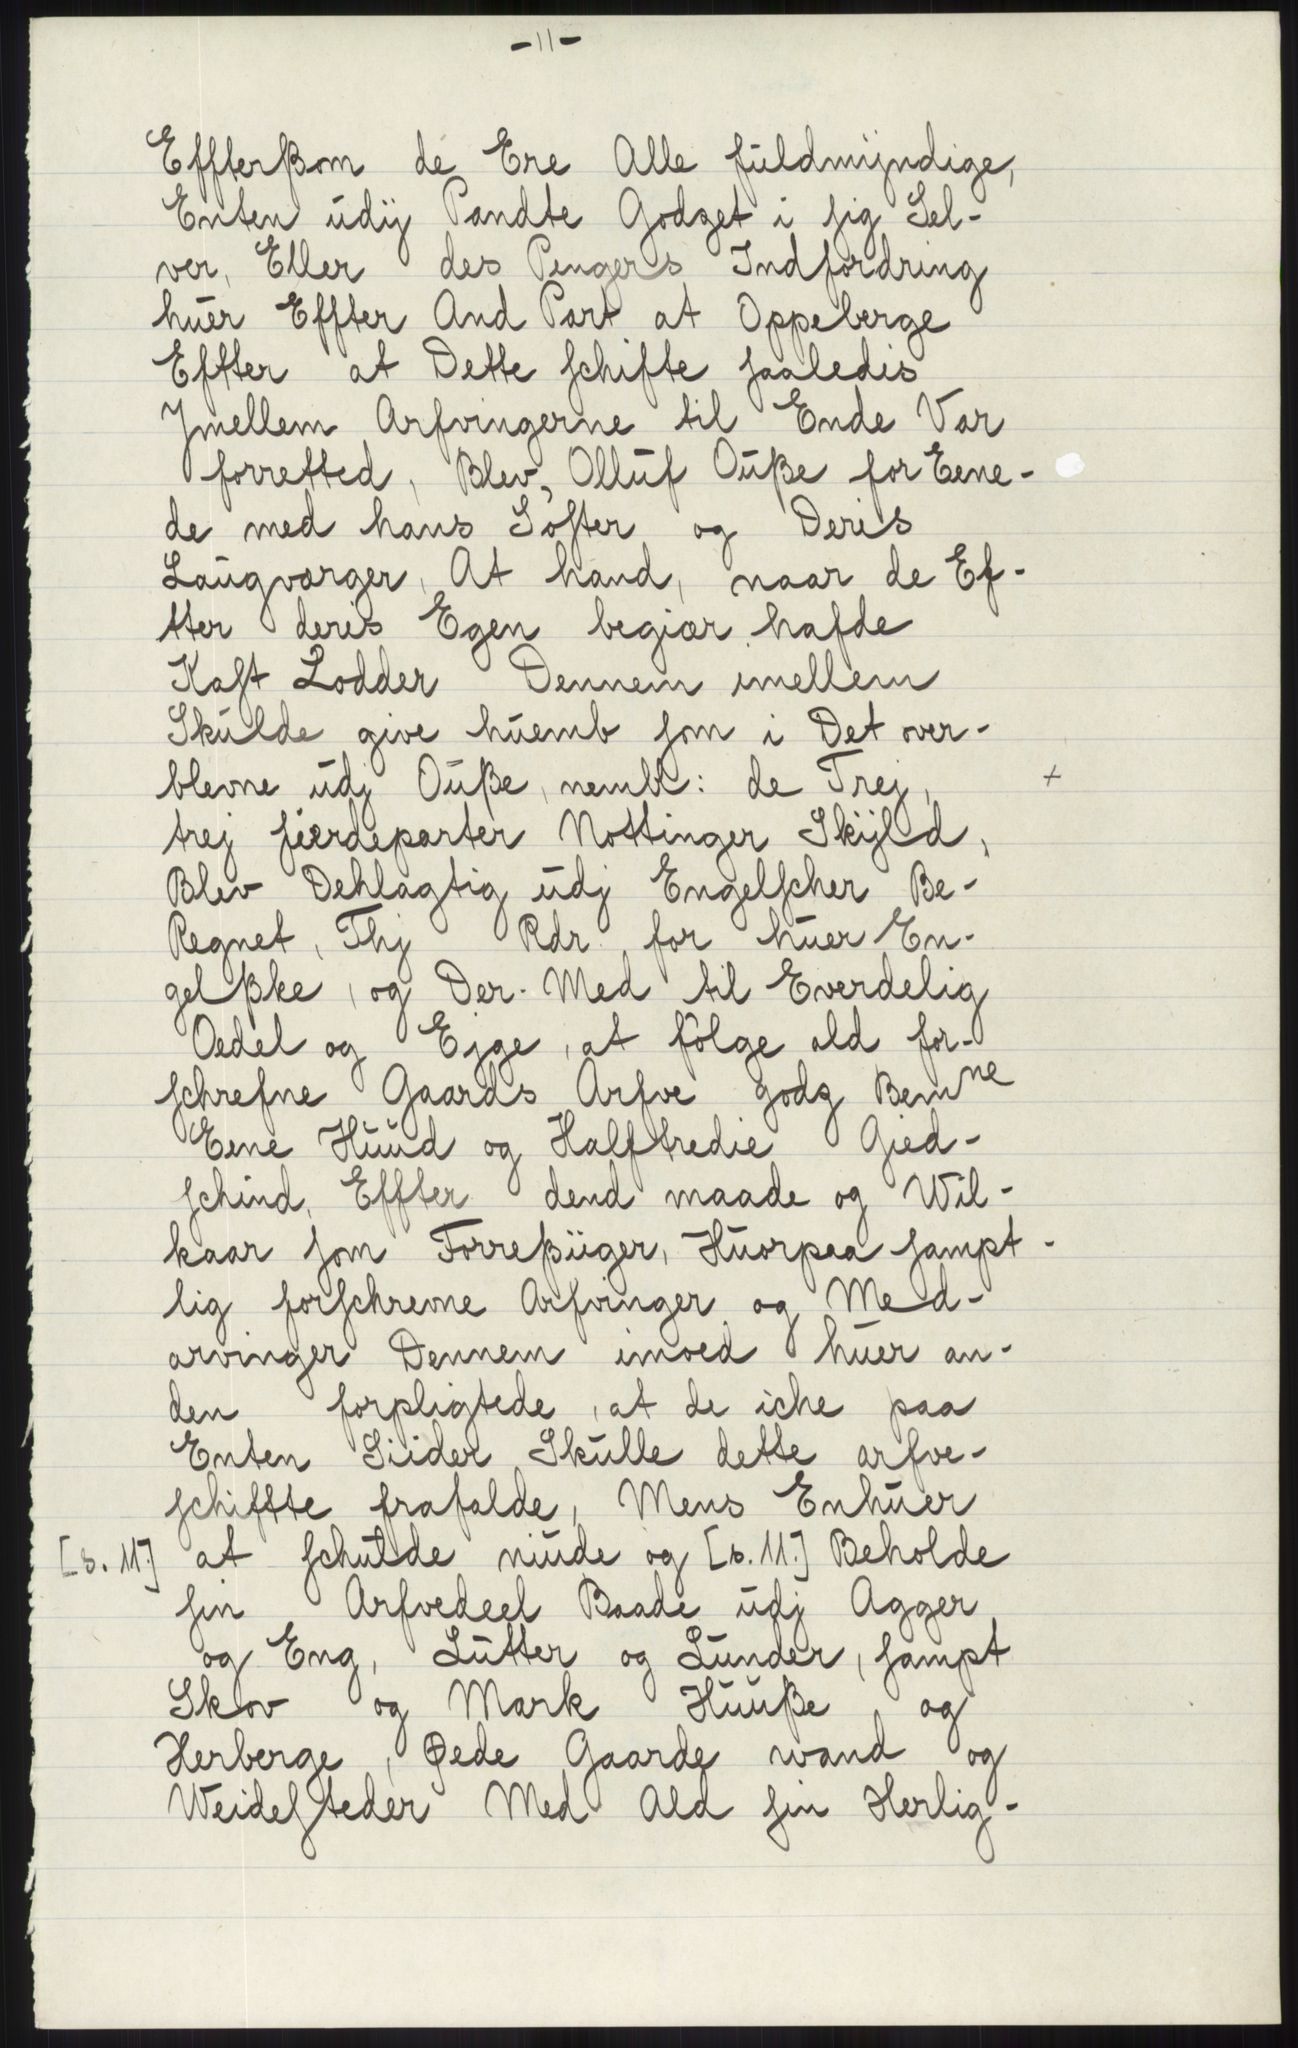 -11-
Effterßom de Ere Alle fuldmÿndige,
Enten udÿ Pandte Godzet i sig Sel-
ver, Eller des Pengers Indfordring
huer Effter And Part at Oppeberge
Effter at Dette schifte saaledis
Jmellem Arfvingerne til Ende Var
forretted, Blev, Olluf Ouße for Eene-
de med hans Søster og Deris
Laugværger, At hand, naar de Ef-
tter deris Egen begiær hafde
Kast Lodder Dennem imellem
Skulde give huemb som i Det over-
blevne udj Ouße, nembl: de Trej, +
trej fierdeparter Nottinger Skÿld,
Blev Dehlagtig udj Engelscher Be-
Regnet, Thj Rdr. for huer En-
gelßke, og Der-Med til Everdelig
Oedel og Ejge, at følge ald for-
schrefne Gaards Arfve godz Bemne
Eene Huud og Halftredie Gied-
schind, Effter dend maade og Wil-
kaar som Forreßiiger, Huorpaa sampt-
lig forschrevne Arfvinger og Med-
arvinger Dennem imoed huer an-
den forpligtede, at de iche paa
Enten Siider Skulle dette arfve-
schiffte frafalde, Mens Enhuer
[s. 11.] at schulde niude og [s. 11.] Beholde
sin Arfvedeel Baade udj Agger
og Eng, Lutter og Lunder, sampt
Skov og Mark Huuße og
Herberge, Øede Gaarde wand og
Weidesteder Med Ald sin Herlig-